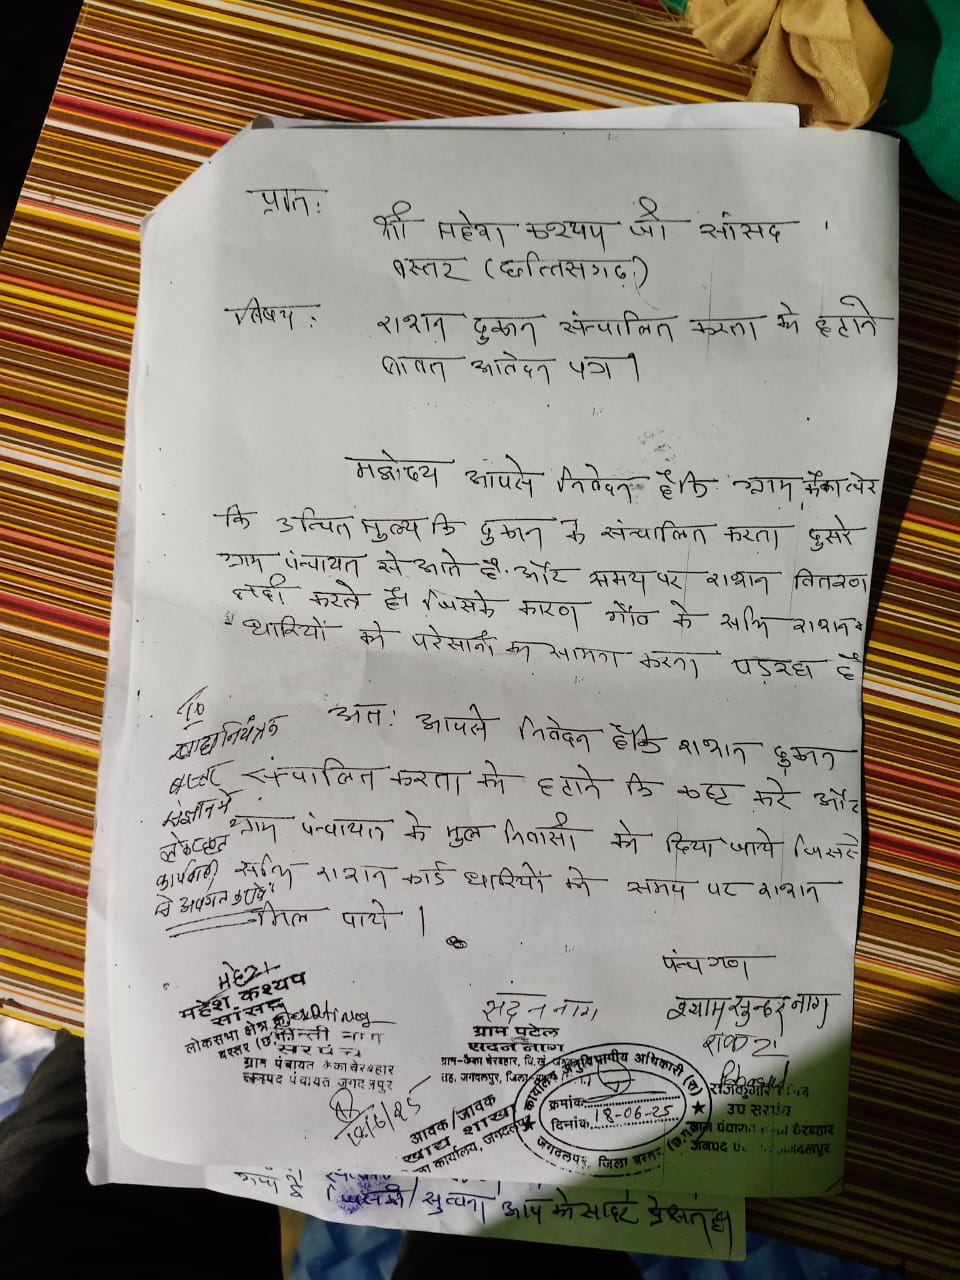 प्रति:
श्री महेश कश्यप जी सांसद
बस्तर (छत्तिसगढ़)
विषय: राशन दुकान संन्चालित करता को हटाने
बाबत आवेदन पत्र।
महोदय आपसे निवेदन है कि ग्राम कैकाव्येर
कि उन्चित मुल्य कि दुकान के संन्चालित करता दुसरे
ग्राम पंन्चायत से आते है. और समय पर राशन वितरण
नही करते है। जिसके कारण गाँव के सभि राशन
धारियों को परेसानी का सामना करना पड़ रहा है
अत: आपसे निवेदन है कि राशन दुकान
संन्चालित करता को हटाने कि कष्ट करे और
ग्राम पंन्चायत के मुल निवासी को दिया जाये जिससे
सभि राशन कार्ड धारियों को समय पर राशन
मिल पाये।
To
खाद्य नियंत्रक
बस्तर
संज्ञान में
लेकर
कार्यवाही
से अवगत करावें
पंन्च गण
महेश कश्यप
सांसद
लोकसभा क्षेत्र
बस्तर (छ.ग.)
सरपंच
ग्राम पंचायत कैकाचेरबहार
जनपद पंचायत जगदलपुर
18/6/25
सदन नाग
ग्राम पटेल
सदन नाग
तह. जगदलपुर, जिला
श्याम सुन्दर नाग
उप सरपंच
जनपद जगदलपुर
आवक/जावक
खाद्य शाखा
कार्यालय, जगदलपुर
कार्यालय अनुविभागीय अधिकारी (रा)
क्रमांक
दिनांक 18-06-25
जगदलपुर, जिला बस्तर (छ.ग.)
सुचना आप को सादर